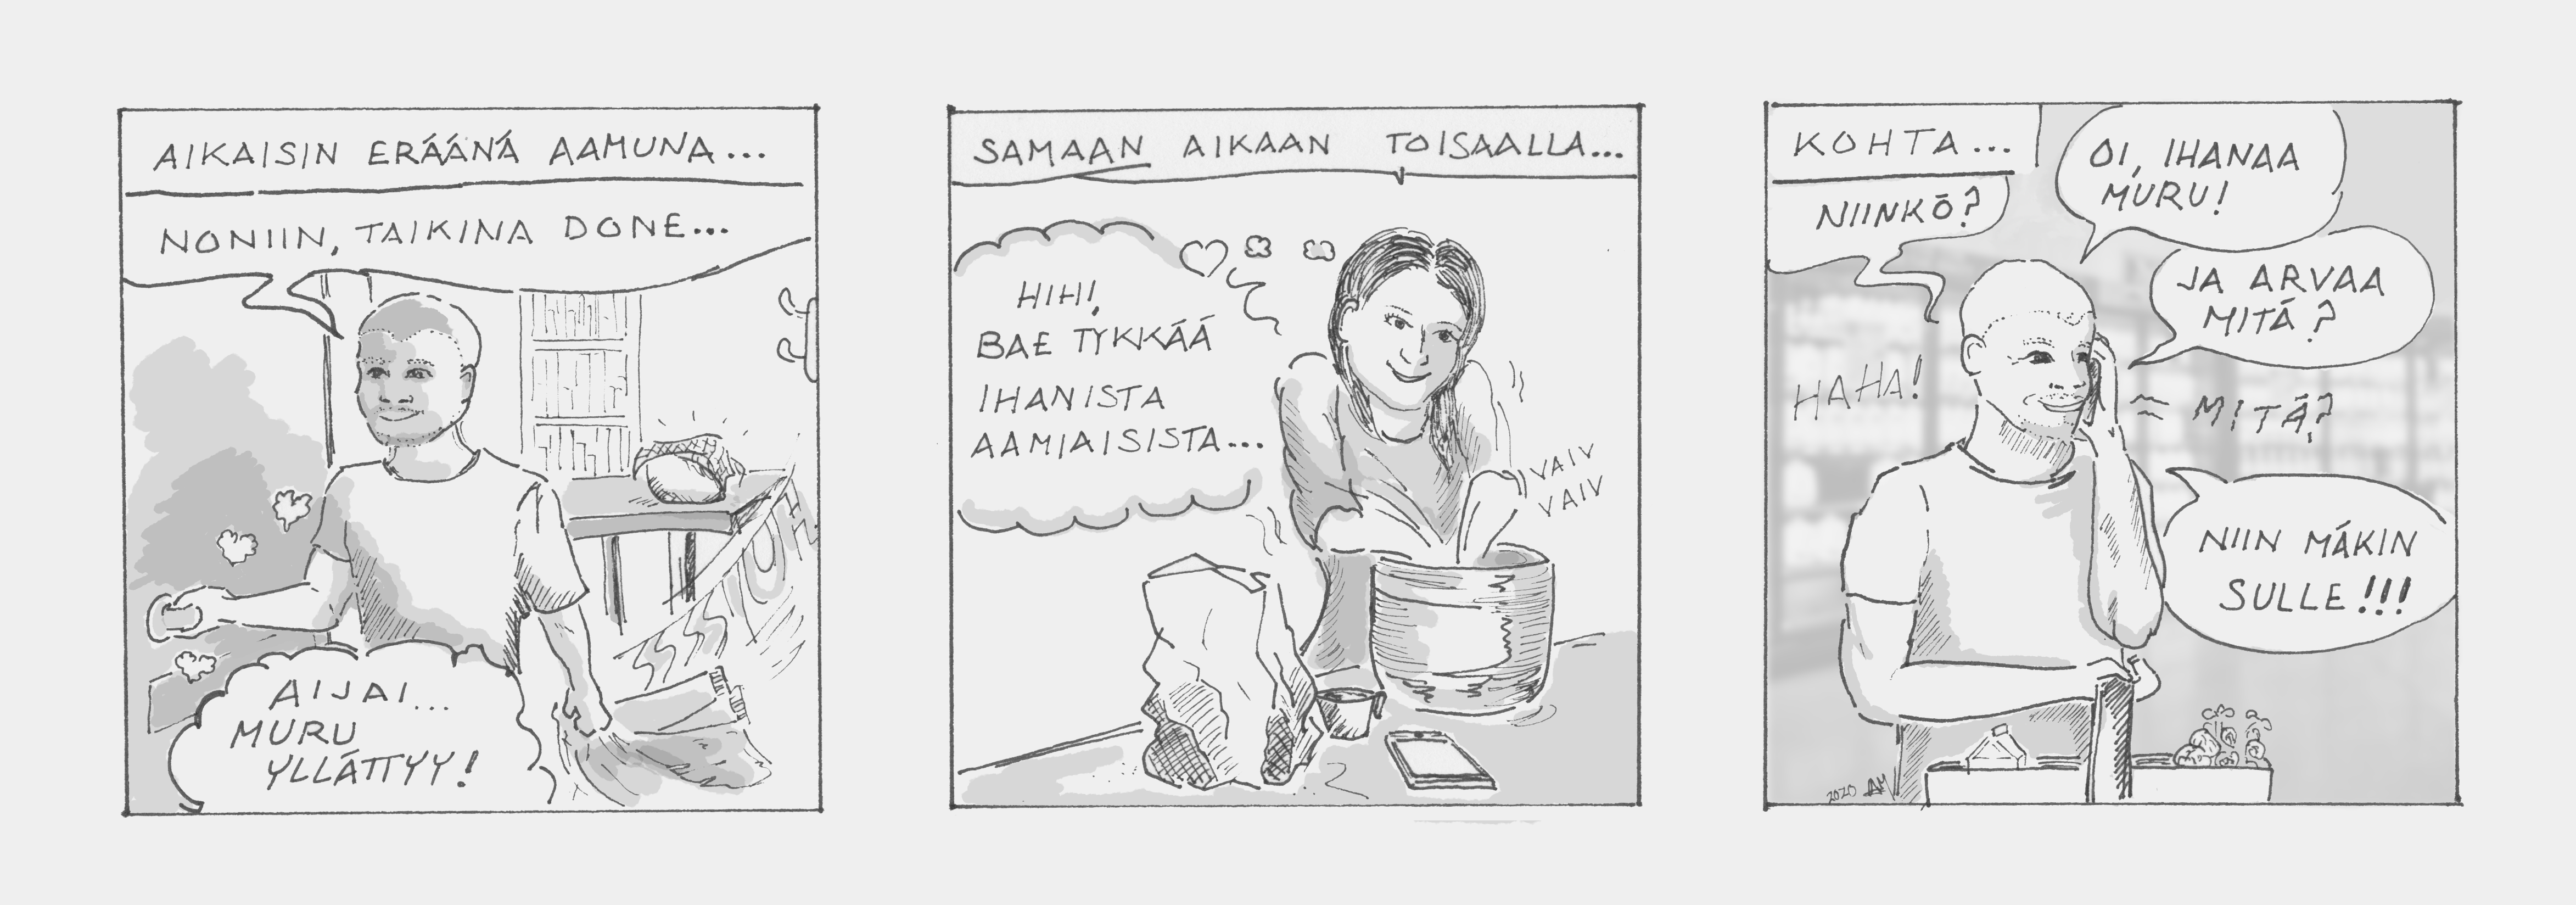 AIKAISIN ERÄÄNÄ AAMUNA...
NONIIN, TAIKINA DONE...
SSSIUH
AIJAI...
MURU
YLLÄTTYY!
SAMAAN AIKAAN TOISAALLA...
HIHI,
BAE TYKKÄÄ
IHANISTA
AAMIAISISTA...
VAIV
VAIV
KOHTA...
NIINKÖ?
OI, IHANAA
MURU!
JA ARVAA
MITÄ?
HAHA!
MITÄ?
NIIN MÄKIN
SULLE!!!
2020 AM